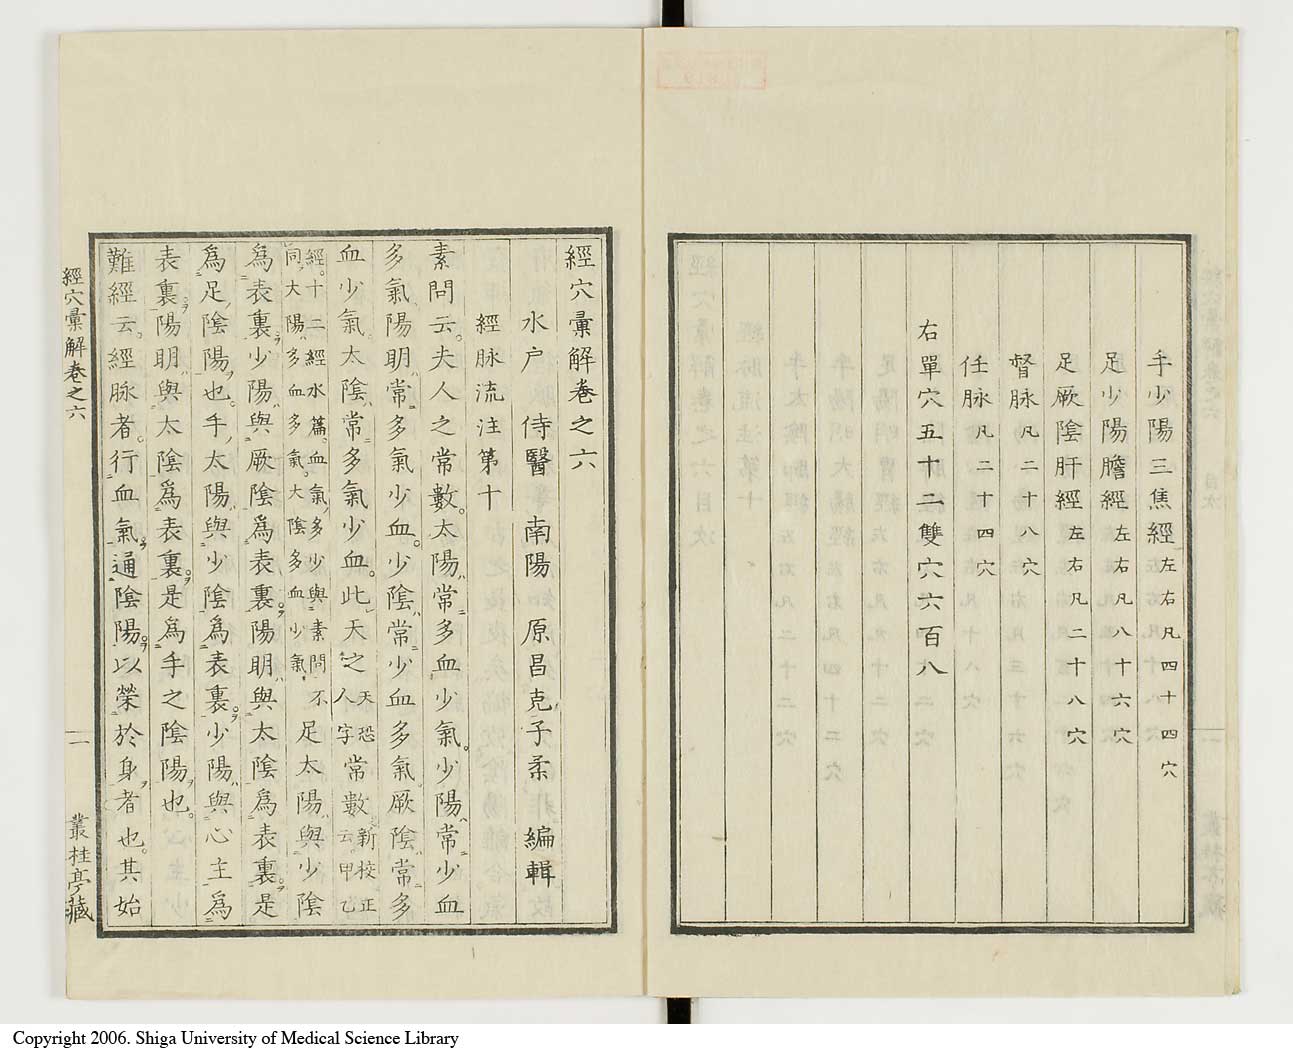 手少陽三焦經左右凡四十四穴
足少陽膽經左右凡八十六穴
足厥陰肝經左右凡二十八穴
督脉凡二十八穴
任脉凡二十四穴
右單穴五十二雙穴六百八
經穴彙解卷之六
水戶 侍醫 南陽 原昌克子柔 編輯
經脉流注第十
素問云。夫人之常數。太陽ハ常ニ多血少氣。少陽ハ常ニ少血
多氣陽明ハ常ニ多氣少血。少陰ハ常ニ少血多氣。厥陰ハ常ニ多
血少氣。太陰ハ常ニ多氣少血。此レ天之人天恐人字常數新校正云。甲乙
經。十二經水篇。血氣ノ多少與素問不同。太陽多血多氣太陰多血少氣足太陽ハ與少陰
為表裏。少陽ハ與厥陰為表裏。陽明ハ與太陰為表裏。是
為足ノ陰陽也。手ノ太陽ハ與少陰為表裏。少陽ハ與心主為
表裏。陽明ハ與太陰為表裏。是為手之陰陽也。
難經云。經脉者。行血氣。通陰陽。以榮於身者也。其始
經穴彙解卷之六 一 叢桂亭藏
Copyright 2006. Shiga University of Medical Science Library